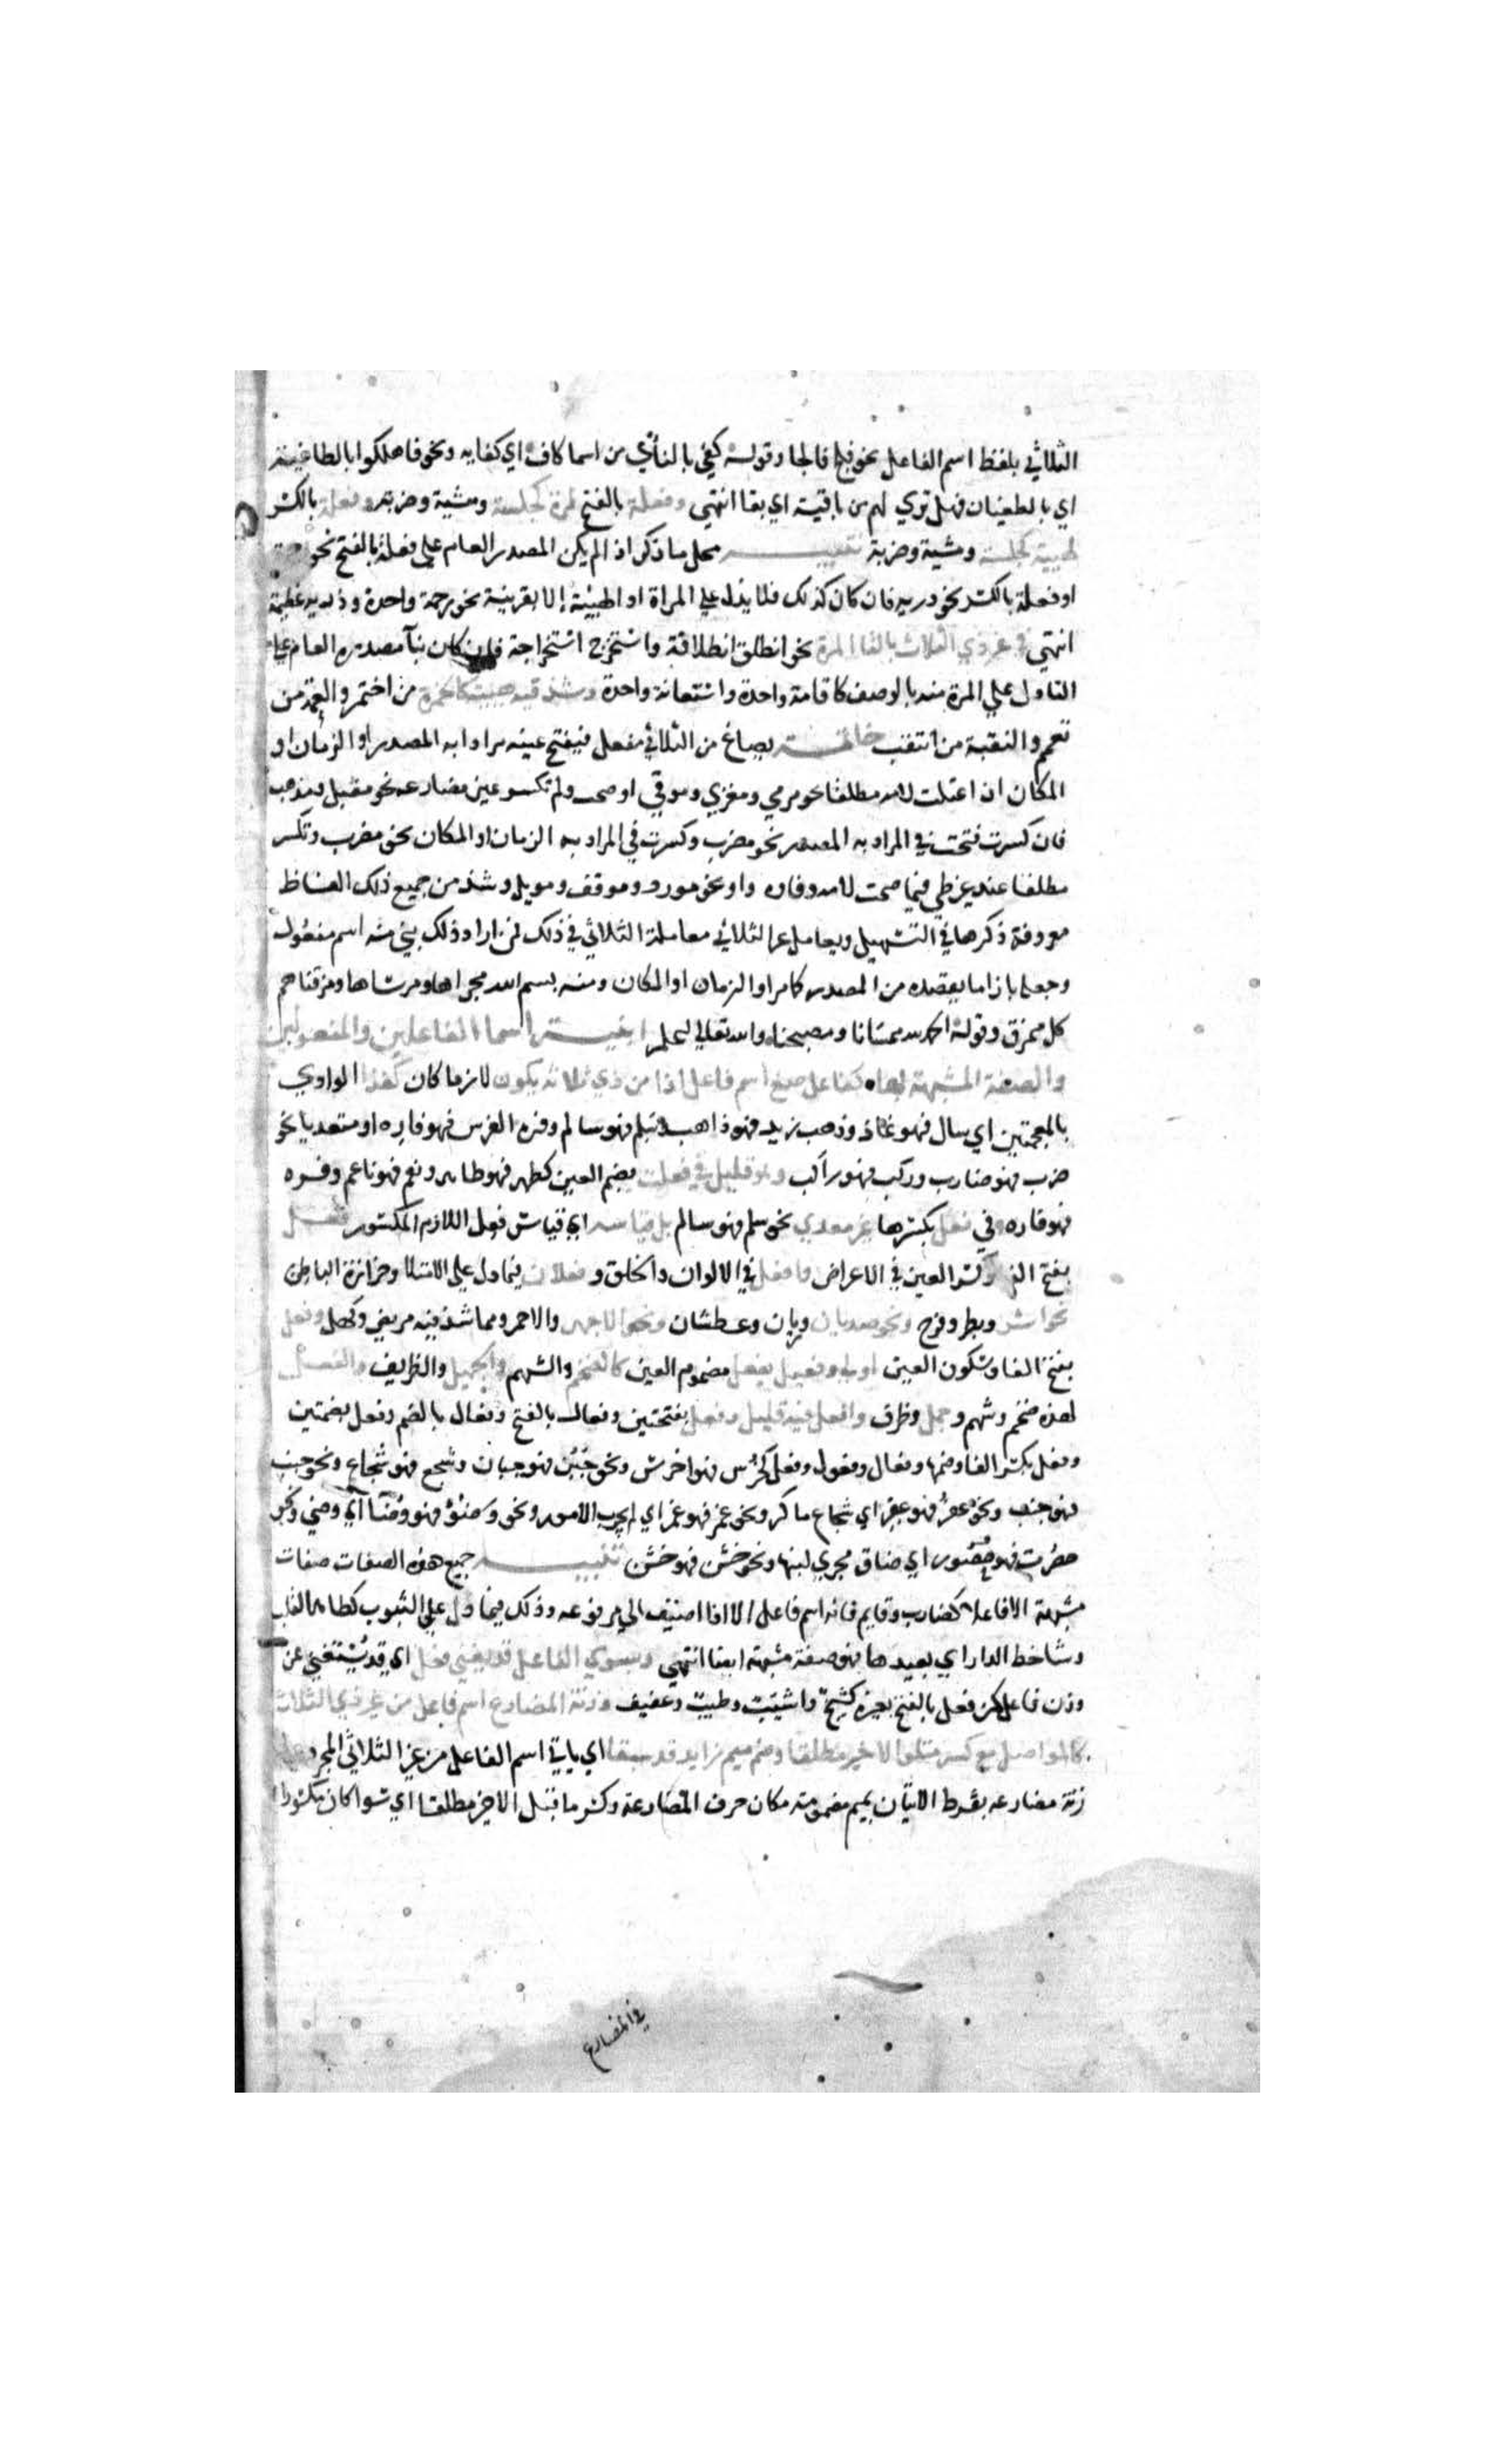 الثلاثي بلفظ اسم الفاعل نحو فلج فالجا وقوله كفي بالنأي من اسما كاف اي كفايه ونحو فاهلكوا بالطاغية
اي بالطغيان فهل تري لهم من باقية اي بقا انتهي وفعلة بالفتح لمرة كجلسة ومشية وضربة وفعلة بالكسر
لهيية كجلسة ومشية وضربة تنبيه محل ما ذكر اذا لم يكن المصدر العام علي فعلة بالفتح نحو رحمة
او فعلة بالكسر نحو دربه فان كان كذلك فلا يدل علي المراة او الهيئة إلا بقرينة نحو رحمة واحدة وذربه عظيمة
انتهي في غير ذي الثلاث بالتا المرة نحو انطلق انطلاقة واستخرج استخراجة فان كان بنآ مصدره العام علي
التا ول علي المرة منه بالوصف كاقامة واحدة واستعانة واحدة وشذ فيه هيية كالخمرة من اختمر والعمة من
تعمم والنقبة من انتقب خاتمة يصاغ من الثلاثي مفعل فيفتح عينه مرادا به المصدر او الزمان او
المكان ان اعتلت لامه مطلقا نحو مرمي ومغزي وموقي او صحت ولم تكسر عين مضارعه نحو مقبل ومذهب
فان كسرت فتحت في المراد به المصدر نحو مضرب وكسرت في المراد به الزمان او المكان نحو مضرب وتكسر
مطلقا عند غير طي فيما صحت لامه وفاوه واو نحو مورد وموقف ومويل وشذ من جميع ذلك الفاظ
معروفة ذكرها في التسهيل ويعامل غير الثلاثي معاملة الثلاثي في ذلك فمن اراد ذلك بني منه اسم مفعول
وجعله بازا ما يقصده من المصدر كامر او الزمان او المكان ومنه بسم الله مجراها ومرساها ومزقناهم
كل ممزق وقوله الحمد لله ممسانا ومصبحنا والله تعالي اعلم ابنية اسما الفاعلين والمفعولين
والصفة المشبهة بها كفاعل صغ اسم فاعل اذا من ذي ثلاثة يكون لازما كان كغذا الواوي
بالمعجمتين اي سال فهو غاذ وذهب زيد فهو ذاهب وسلم فهو سالم وفره الفرس فهو فاره او متعديا نحو
ضرب فهو ضارب وركب فهو راكب وهو قليل في فعلت بضم العين كطهر فهو طاهر ونعم فهو ناعم وفره
فهو فاره وفي فعل بكسرها غير معدي نحو سلم فهو سالم بل قياسه اي قياس فعل اللازم المكسور فعل
بفتح الفا وكسر العين في الاعراض وافعل في الالوان والخلق وفعلان فيما دل علي الامتلا وحرارة الباطن
نحو اشر وبطر وفرح ونحو صديان وريان وعطشان ونحو الاجهر والاحمر ومما شذ فيه مريض وكهل وفعل
بفتح الفا وسكون العين اولي وفعيل بفعل مضموم العين كالضخم والشهم والجميل والظريف والفعل
لهذه ضخم وشهم وجمل وظرف وافعل فيه قليل وفعل بفتحتين وفعال بالفتح وفعال بالضم وفعل بضمتين
وفعل بكسر الفا وضمها وفعال وفعول وفعل كخرس فهو اخرس ونحو جبن فهو جبان وشجع فهو شجاع ونحو جنب
فهو جنب ونحو عفر فهو عفر اي شجاع ماكر ونحو غمر فهو غمر اي لم يجرب الامور ونحو وضؤ فهو وضآ اي وضي ونحو
حصرت فهو حصور اي ضاق مجري لبنها ونحو خشن فهو خشن تنبيه جميع هذه الصفات صفات
مشبهة الا فاعلا كضارب وقايم فانه اسم فاعل الا اذا اضيف الي مرفوعه وذلك فيما دل علي الثبوت كطاهر القلب
وشاحط الدار اي بعيدها فهو صفة مشبهة ايضا انتهي وبسوي الفاعل قد يغني فعل اي قد يستغني عن
وزن فاعل من فعل بالفتح بغيره كشيخ واشيب وطيب وعفيف وزنة المضارع اسم فاعل من غير ذي الثلاث
كالمواصل مع كسر متلو الاخير مطلقا وضم ميم زايد قد سبقا اي ياتي اسم الفاعل من غير الثلاثي المجرد علي
زنة مضارعه بشرط الاتيان بميم مضمومة مكان حرف المضارعة وكسر ما قبل الاخر مطلقا اي سوا كان مكسورا
في المضارع